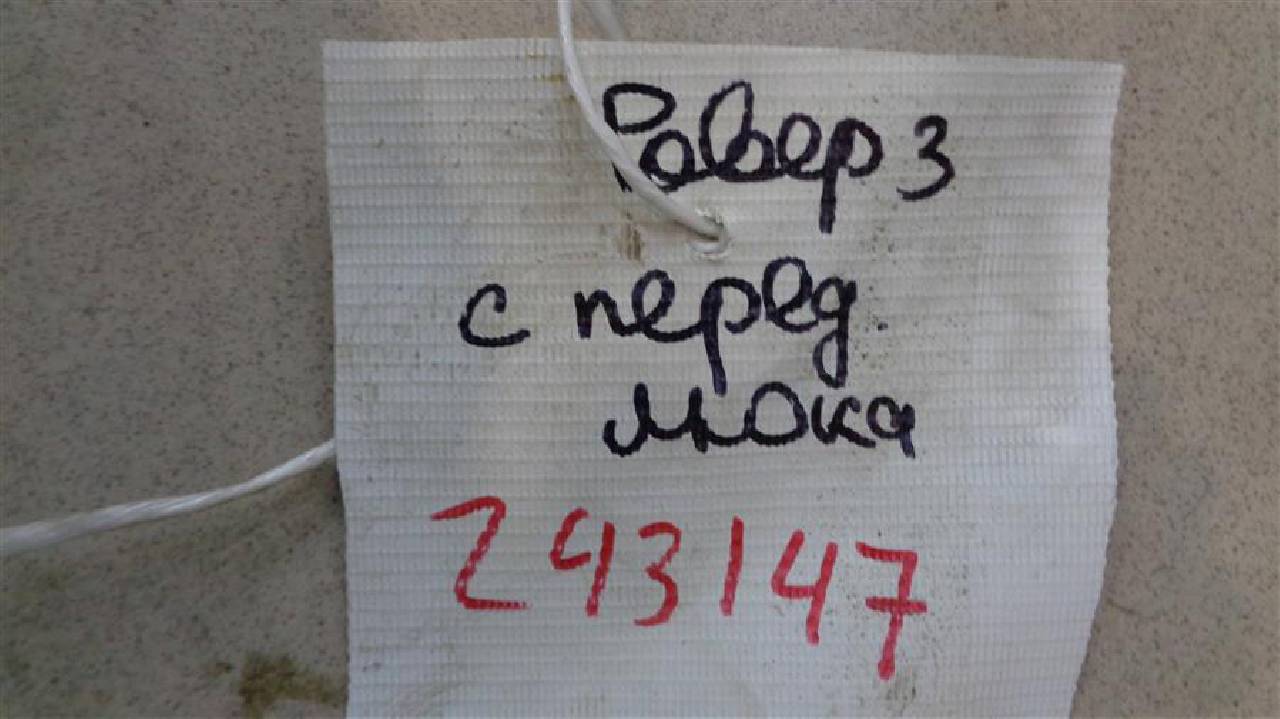 Ровер 3
с перед.
люка
243147